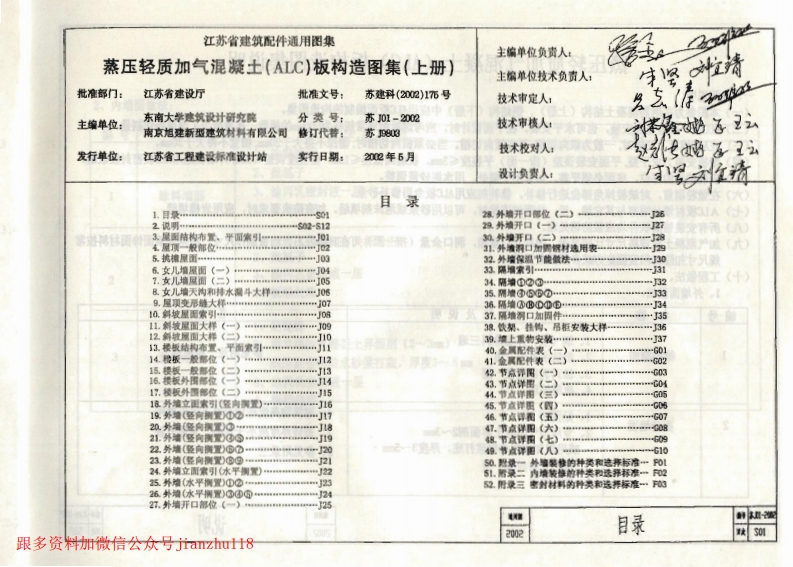 江苏省建筑配件通用图集
蒸压轻质加气混凝土(ALC)板构造图集(上册)
批准部门: 江苏省建设厅 批准文号: 苏建科(2002)175号
主编单位: 东南大学建筑设计研究院 分类号: 苏 J01-2002
南京旭建新型建筑材料有限公司 修订代替: 苏 J9803
发行单位: 江苏省工程建设标准设计站 实行日期: 2002年5月
主编单位负责人:
主编单位技术负责人:
技术审定人:
技术审核人:
技术校对人:
设计负责人:
目 录
1. 目录 S01
2. 说明 S02-S12
3. 屋面结构布置、平面索引 J01
4. 屋顶一般部位 J02
5. 挑檐屋面 J03
6. 女儿墙屋面 (一) J04
7. 女儿墙屋面 (二) J05
8. 女儿墙天沟和排水漏斗大样 J06
9. 屋顶变形缝大样 J07
10. 斜坡屋面索引 J08
11. 斜坡屋面大样 (一) J09
12. 斜坡屋面大样 (二) J10
13. 楼板结构布置、平面索引 J11
14. 楼板一般部位 (一) J12
15. 楼板一般部位 (二) J13
16. 楼板外围部位 (一) J14
17. 楼板外围部位 (二) J15
18. 外墙立面索引(竖向搁置) J16
19. 外墙(竖向搁置)①② J17
20. 外墙(竖向搁置)③ J18
21. 外墙(竖向搁置)④⑤ J19
22. 外墙(竖向搁置)⑥⑦ J20
23. 外墙(竖向搁置)⑧⑨ J21
24. 外墙立面索引(水平搁置) J22
25. 外墙(水平搁置)①② J23
26. 外墙(水平搁置)③④⑤ J24
27. 外墙开口部位 (一) J25
28. 外墙开口部位 (二) J26
29. 外墙开口 (一) J27
30. 外墙开口 (二) J28
31. 外墙洞口加固钢材选用表 J29
32. 外墙保温节能做法 J30
33. 隔墙索引 J31
34. 隔墙①②③ J32
35. 隔墙④⑤⑥⑦ J33
36. 隔墙ⒶⒷⒸⒹⒺ J34
37. 隔墙洞口加固件 J35
38. 铁架、挂钩、吊柜安装大样 J36
39. 墙上重物安装 J37
40. 金属配件表 (一) G01
41. 金属配件表 (二) G02
42. 节点详图 (一) G03
43. 节点详图 (二) G04
44. 节点详图 (三) G05
45. 节点详图 (四) G06
46. 节点详图 (五) G07
47. 节点详图 (六) G08
48. 节点详图 (七) G09
49. 节点详图 (八) G10
50. 附录一 外墙装修的种类和选择标准 F01
51. 附录二 内墙装修的种类和选择标准 F02
52. 附录三 密封材料的种类和选择标准 F03
通用图 2002
目录
编号 苏J01-2002
页次 S01
跟多资料加微信公众号jianzhu118